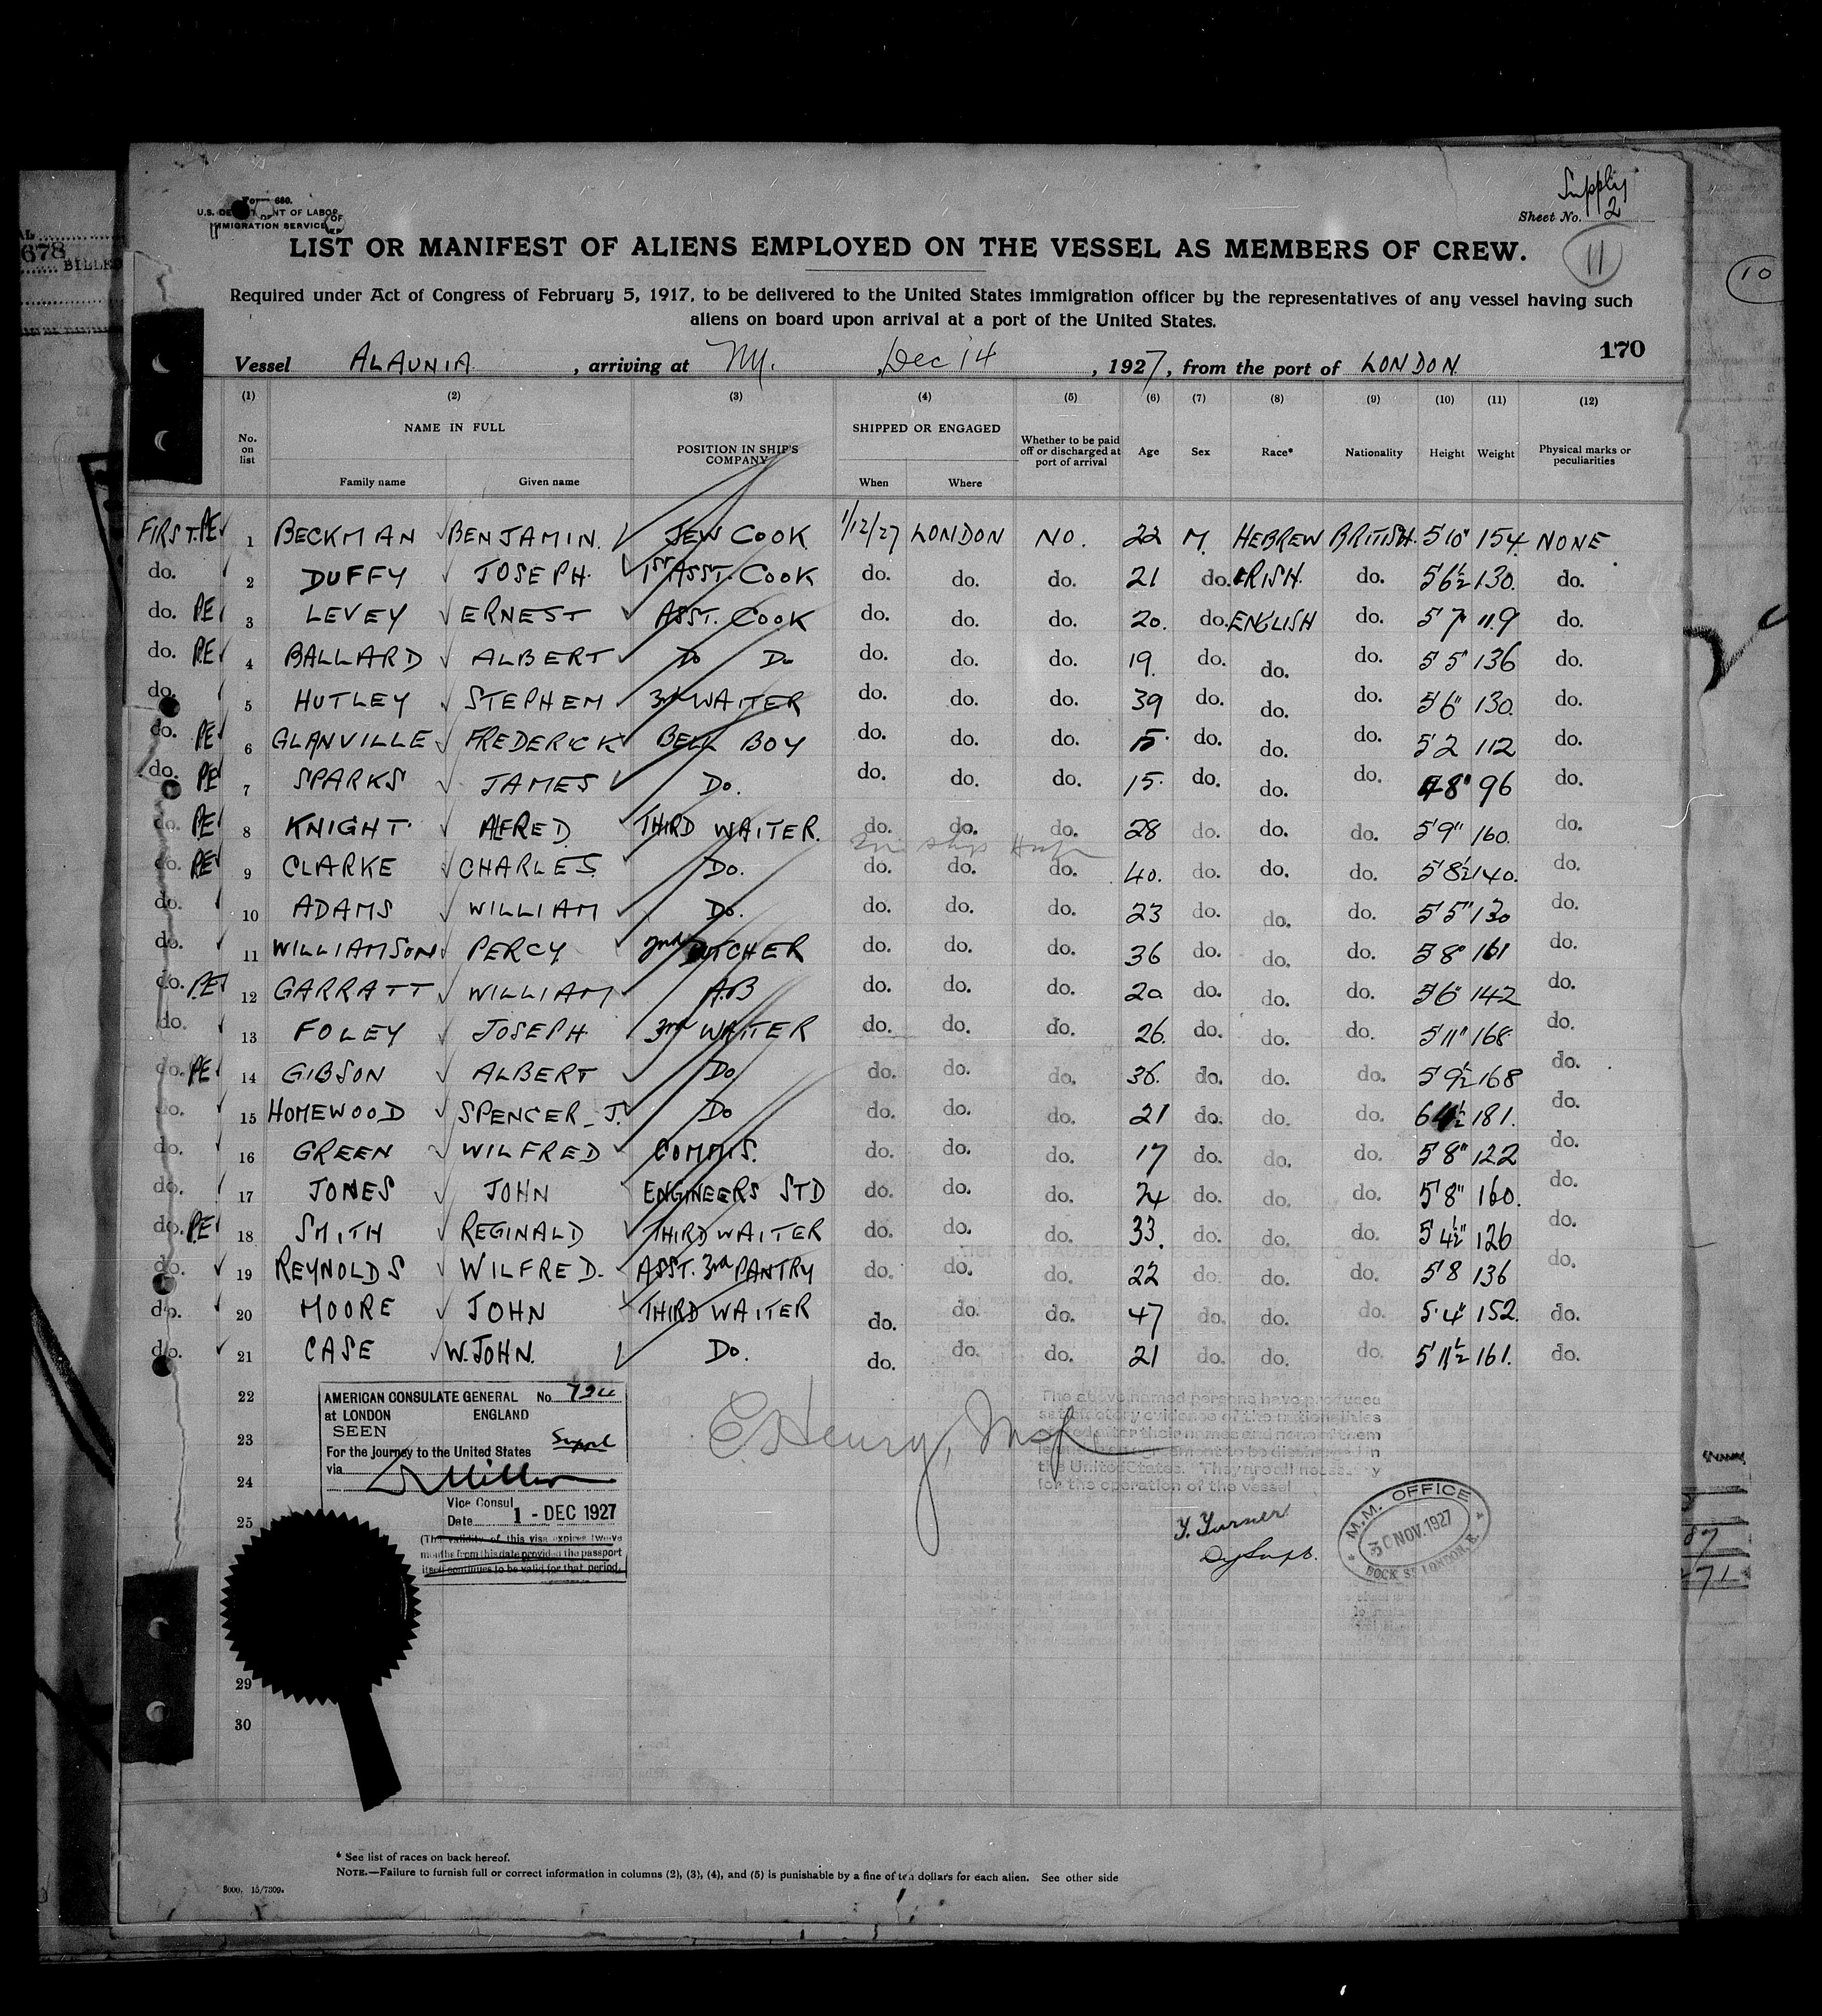 Supply
Form 680.
U.S. DEPARTMENT OF LABOR
IMMIGRATION SERVICE
Sheet No. 2
LIST OR MANIFEST OF ALIENS EMPLOYED ON THE VESSEL AS MEMBERS OF CREW.
11
10
678
BILLE
Required under Act of Congress of February 5, 1917, to be delivered to the United States immigration officer by the representatives of any vessel having such
aliens on board upon arrival at a port of the United States.
170
Vessel ALAUNIA , arriving at NY. , Dec 14 , 1927, from the port of LONDON
(1) (2) (3) (4) (5) (6) (7) (8) (9) (10) (11) (12)
No. on list NAME IN FULL Family name Given name POSITION IN SHIP'S COMPANY SHIPPED OR ENGAGED When Where Whether to be paid off or discharged at port of arrival Age Sex Race* Nationality Height Weight Physical marks or peculiarities
FIRST. PE 1 BECKMAN BENJAMIN. JEW COOK 1/12/27 LONDON NO. 22 M. HEBREW BRITISH. 5'10" 154 NONE
do. 2 DUFFY JOSEPH. 1ST ASST. COOK do. do. do. 21 do. IRISH. do. 5'6½ 130. do.
do. PE 3 LEVEY ERNEST ASST. COOK do. do. do. 20. do. ENGLISH do. 5'7" 119 do.
do. PE 4 BALLARD ALBERT Do Do do. do. do. 19. do. do. do. 5'5" 136 do.
do. 5 HUTLEY STEPHEN 3rd WAITER do. do. do. 39 do. do. do. 5'6" 130. do.
do. PE 6 GLANVILLE FREDERICK BELL BOY do. do. do. 15. do. do. do. 5'2 112 do.
do. PE 7 SPARKS JAMES Do. do. do. do. 15. do. do. do. 4'8" 96 do.
do. PE 8 KNIGHT ALFRED THIRD WAITER. do. do. do. 28 do. do. do. 5'9" 160. do.
do. PE 9 CLARKE CHARLES Do. do. do. do. 40. do. do. do. 5'8½ 140. do.
do. 10 ADAMS WILLIAM Do. do. do. do. 23 do. do. do. 5'5" 130 do.
do. 11 WILLIAMSON PERCY 2nd BUTCHER do. do. do. 36 do. do. do. 5'8" 161 do.
do. PE 12 GARRATT WILLIAM A.B do. do. do. 20 do. do. do. 5'6" 142 do.
do. 13 FOLEY JOSEPH 3rd WAITER do. do. do. 26. do. do. do. 5'11" 168 do.
do. PE 14 GIBSON ALBERT Do do. do. do. 36. do. do. do. 5'9½ 168 do.
do. 15 HOMEWOOD SPENCER_J. Do do. do. do. 21 do. do. do. 181. do.
do. 16 GREEN WILFRED COMMIS. do. do. do. 17 do. do. do. 5'8" 122 do.
do. 17 JONES JOHN ENGINEERS STD do. do. do. 24 do. do. do. 5'8" 160. do.
do. PE 18 SMITH REGINALD THIRD WAITER do. do. do. 33. do. do. do. 5'4½" 126 do.
do. 19 REYNOLDS WILFRED. ASST. 3rd PANTRY do. do. do. 22 do. do. do. 5'8 136 do.
do. 20 MOORE JOHN THIRD WAITER do. do. do. 47 do. do. do. 5'4" 152. do.
do. 21 CASE W. JOHN. Do. do. do. do. 21 do. do. do. 5'11½ 161. do.
22
23
24
25
29
30
AMERICAN CONSULATE GENERAL No.
at LONDON ENGLAND
SEEN
For the journey to the United States
via
Vice Consul
Date 1 - DEC 1927
(The validity of this visa expires twelve
months from this date provided the passport
itself continues to be valid for that period.
E Henry,
The above named persons have produced
satisfactory evidence of the nationalities
noted after their names and none of them
the United States. They are all necessary
for the operation of the vessel
Y. Turner
Dy Supt.
M.M. OFFICE
30 NOV. 1927
DOCK ST LONDON, E.
* See list of races on back hereof.
NOTE.—Failure to furnish full or correct information in columns (2), (3), (4), and (5) is punishable by a fine of ten dollars for each alien. See other side
5000. 15/7309.